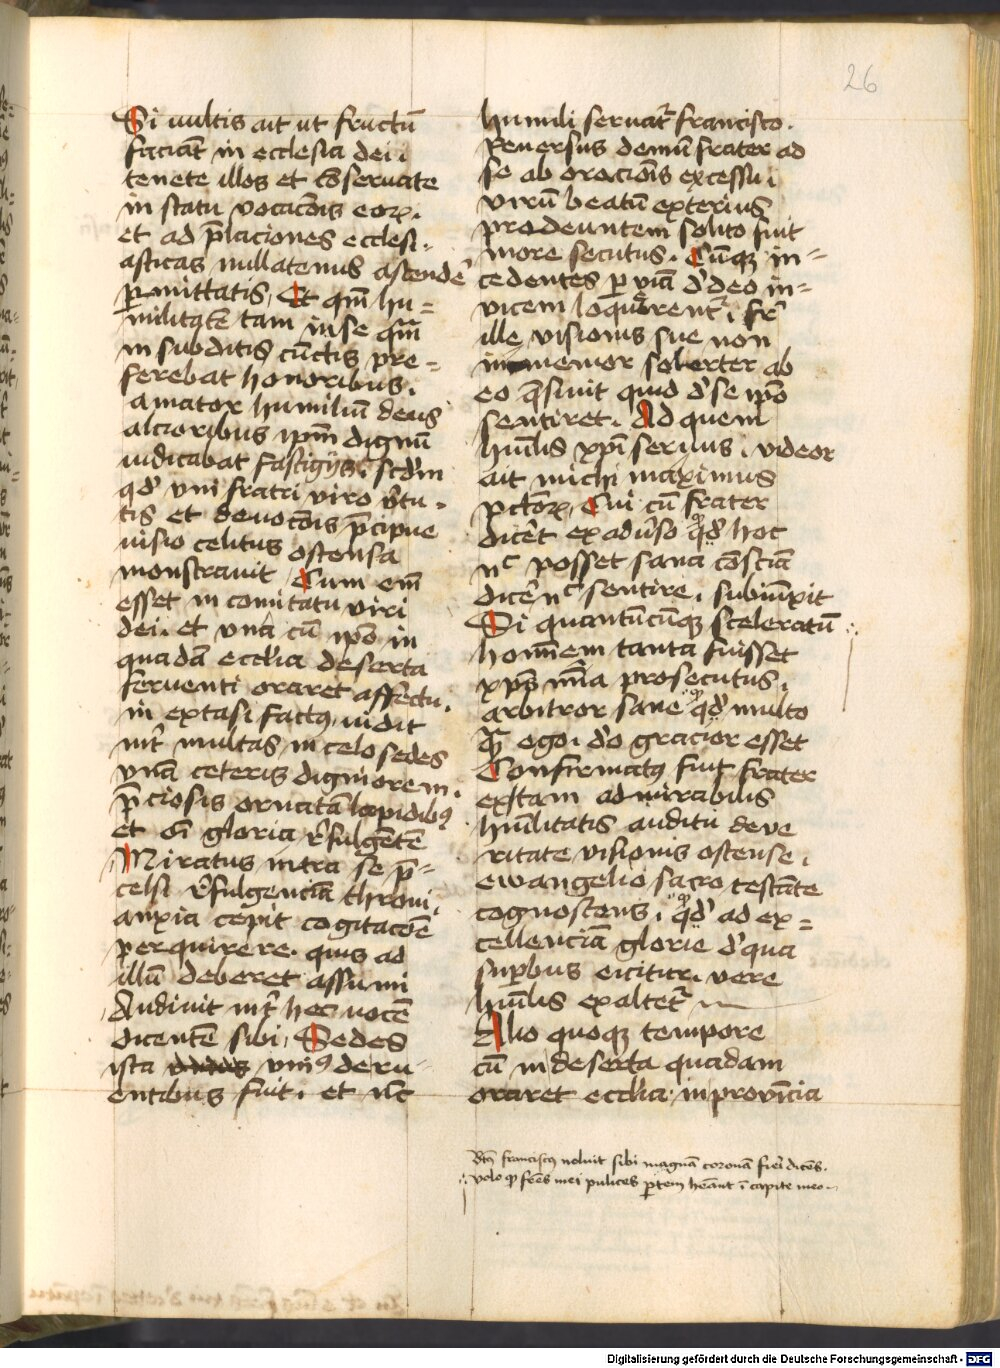 26
Si wltis ait ut fructū
faciāt in ecclesia dei.
tenete illos et cōseruate
in statu vocacōis eoꝝ.
et ad p̄laciones ecclesi-
asticas nullatenus ascendē
ꝑmittatis, Et qm̄ hu=
militatē tam in se qm̄
in subditis cūctis pre=
ferebat honoribus.
amator humiliū deus
alcioribus ipm̄ dignū
iudicabat fastigijs. scd̄m
qd̓ vni fratri viro v̓tu-
tis et deuocōis p̄cipue
visio celitus ostensa
monstrauit, Cum em̄
esset in comitatu viri
dei. et vna cū ipo in
quadā eccl̓ia deserta
feruenti oraret affectu.
in extasi factꝰ, uidit
int̓ multas in celo sedes
vnā ceteris digniorem.
p̄ciosis ornatā lapidibꝰ
et oī gloria r̓fulgētē
Miratus intra se p̄-
celsi r̓fulgenciā throni.
anxia cepit cogitacōe
perquirere. quis ad
illū deberet assumi
Audiuit int̓ hec vocē
dicentē sibi, Sedes
ista vniꝰ de ru-
entibus fuit. et nc̄
humili seruat̓ francisco.
Reuersus demū frater ad
se ab oracōnis excessu.
virū beatū exterius
prodeuntem solito fuit
more secutus. Cūqꝫ in=
cedentes ꝑ viā d̓ deo in-
vicem loq̄rent̓. fr̄
ille visionis sue non
inmemor solerter ab
eo q̄siuit quid d̓ se ipō
sentiret. Ad quem
hūilis xpī seruus. videor
ait michi maximus
pctōꝝ, Cui cū frater
dicēt ex adūso qd̓ hoc
nc̄ posset sana cōsciā
dicē nc̄ sentire. subiūxit
Si quantūcūqꝫ sceleratū
hominem tanta fuisset
xp̄s mīa prosecutus.
arbitror sane qd̓ multo
q̄ ego. d̓o gracior esset
Confirmatꝰ fuit frater
ex tam admirabilis
hūilitatis auditu de ve
ritate visionis ostense.
ewangelio sacro testāte
cognoscens. qd̓ ad ex=
cellenciā glorie d̓ qua
supbus eicitur. vere
hūilis exaltet̓
Alio quoqꝫ tempore
cū in deserta quadam
oraret eccl̓ia in prouīcia
Btꝰ franciscꝰ noluit sibi magnā coronā fieri dicēs.
volo qͣ fr̄es mei pulices ꝑtem hēant ī capite meo
Digitalisierung gefördert durch die Deutsche Forschungsgemeinschaft - DFG